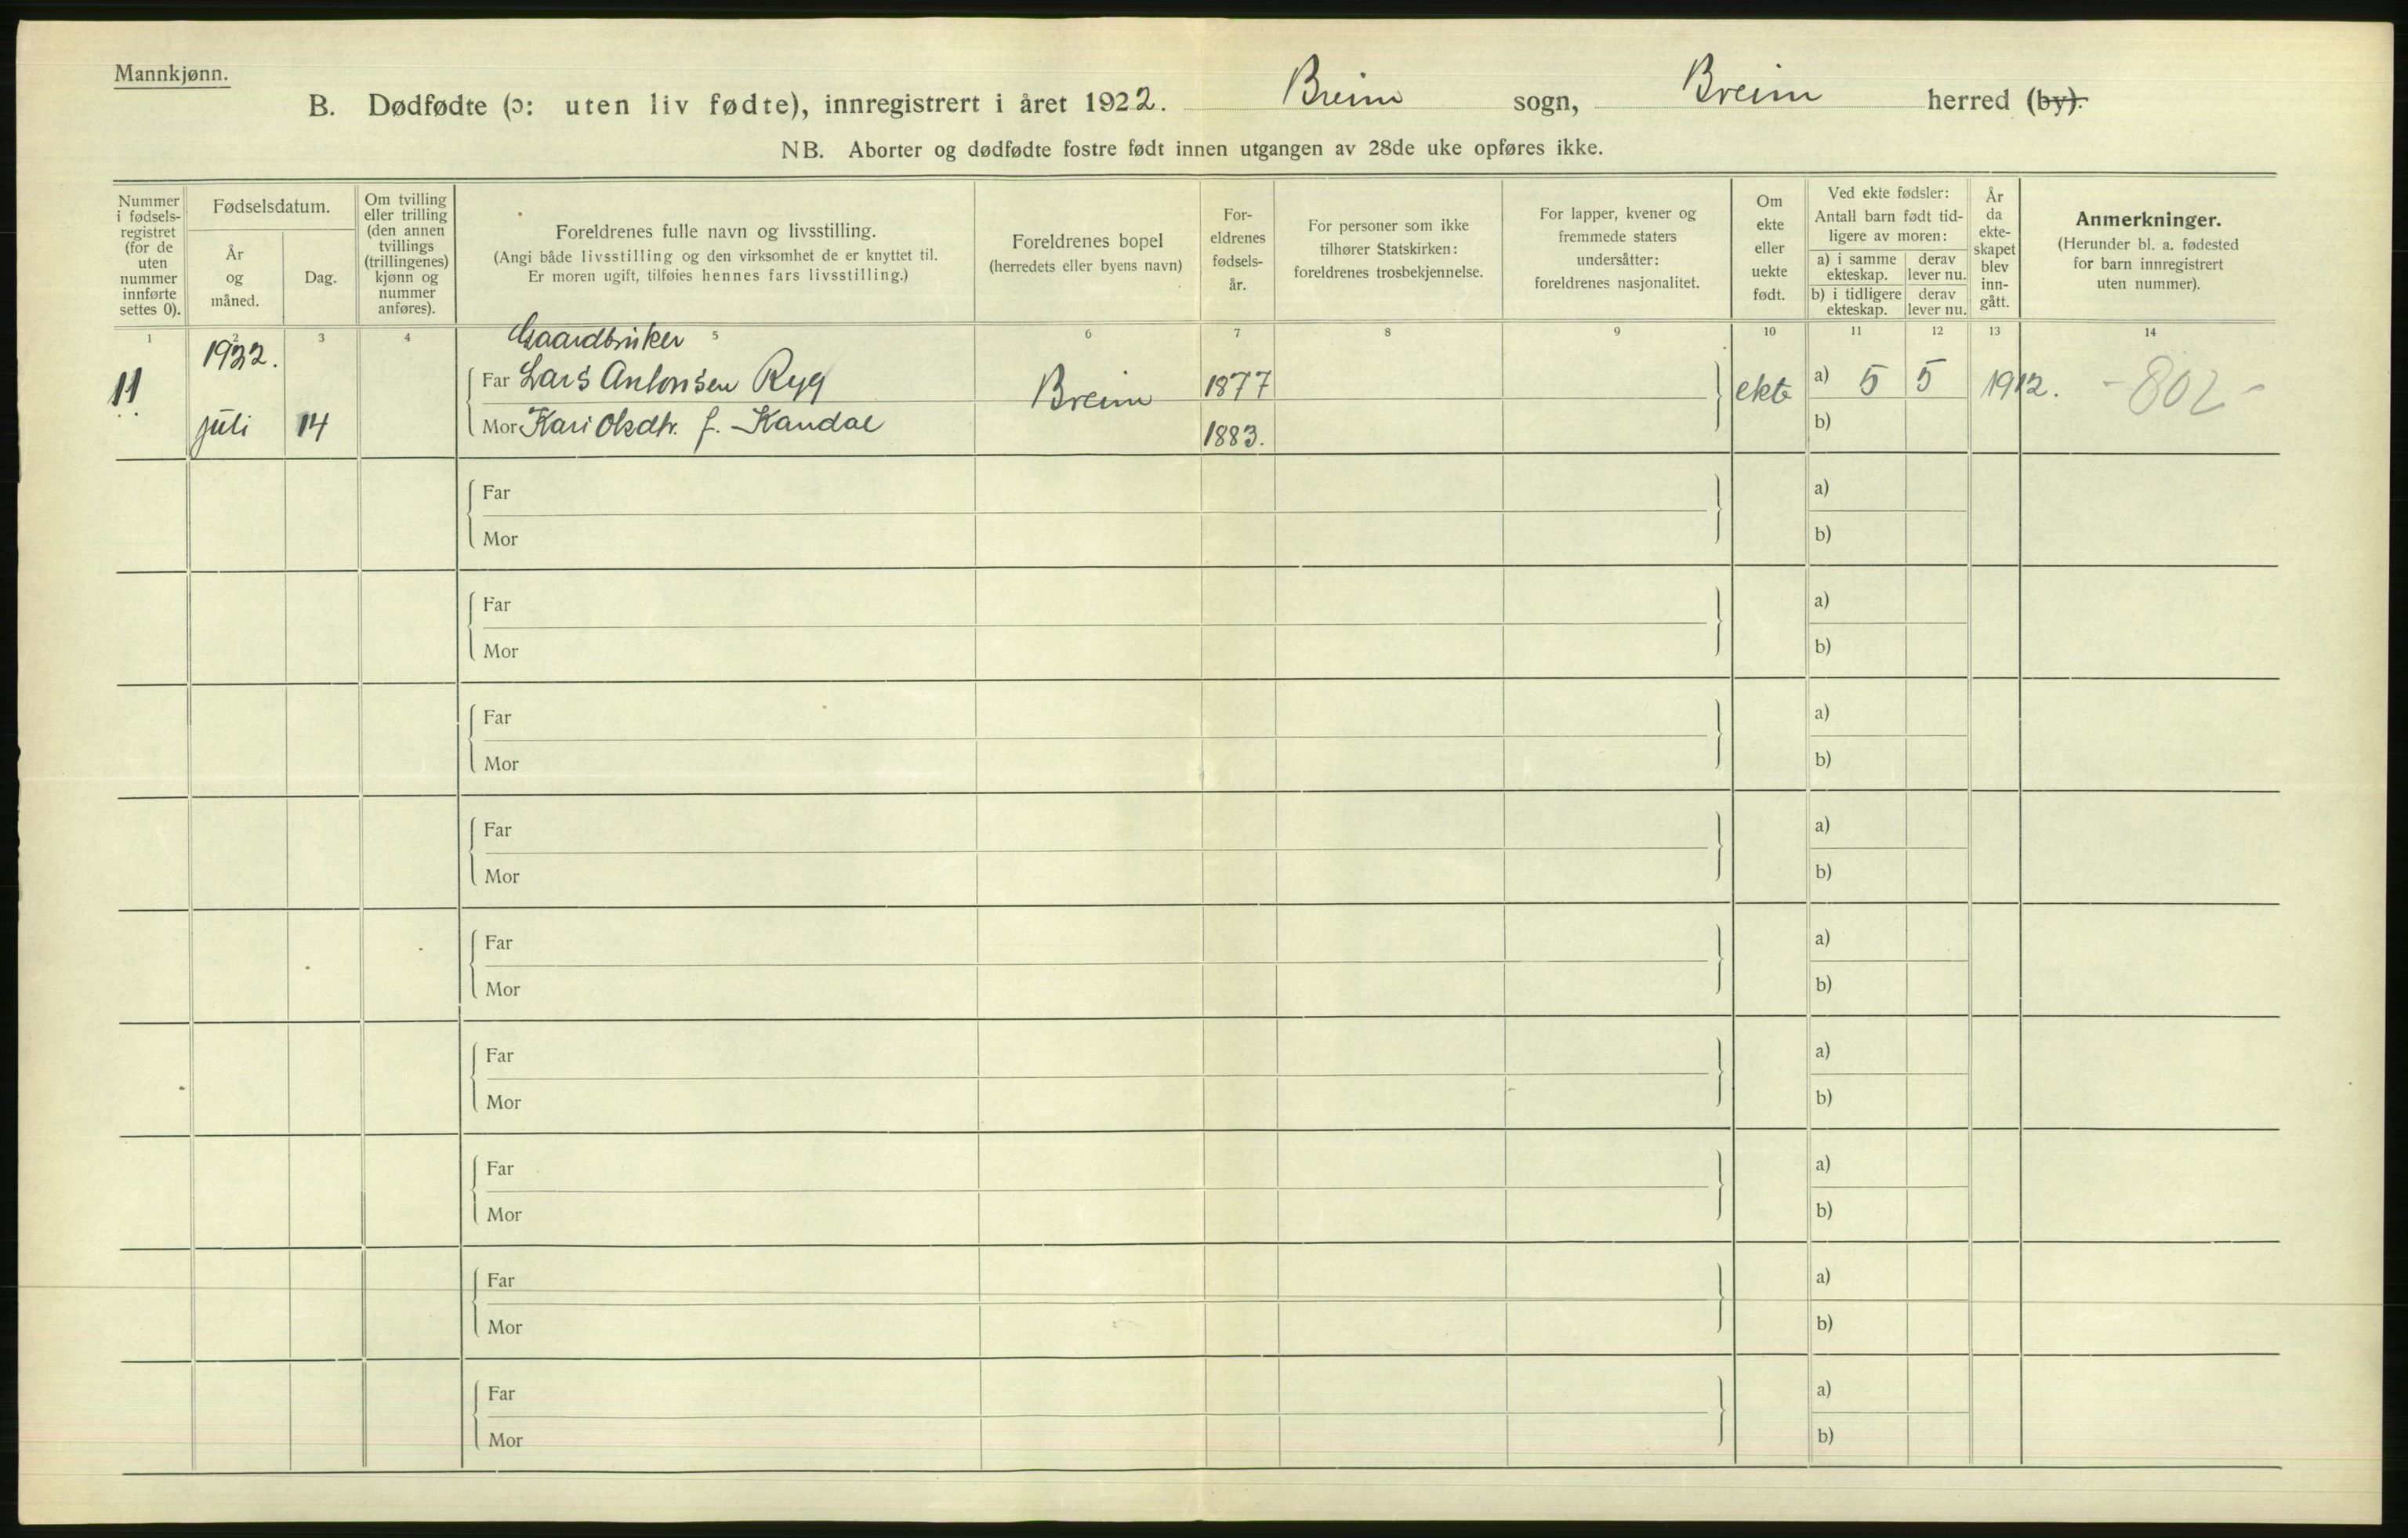 Mannkjønn.
B. Dødfødte (ɔ: uten liv fødte), innregistrert i året 1922. Breim sogn, Breim herred (by).
NB. Aborter og dødfødte fostre født innen utgangen av 28de uke opføres ikke.
Nummer
i fødsels-
registret
(for de
uten
nummer
innførte
settes 0).
Fødselsdatum.
År
og
måned.
Dag.
Om tvilling
eller trilling
(den annen
tvillings
(trillingenes)
kjønn og
nummer
anføres).
Foreldrenes fulle navn og livsstilling.
(Angi både livsstilling og den virksomhet de er knyttet til.
Er moren ugift, tilføies hennes fars livsstilling.)
Foreldrenes bopel
(herredets eller byens navn)
For-
eldrenes
fødsels-
år.
For personer som ikke
tilhører Statskirken:
foreldrenes trosbekjennelse.
For lapper, kvener og
fremmede staters
undersåtter:
foreldrenes nasjonalitet.
Om
ekte
eller
uekte
født.
Ved ekte fødsler:
Antall barn født tid-
ligere av moren:
a) i samme
ekteskap.
derav
lever nu.
b) i tidligere
ekteskap.
derav
lever nu.
År
da
ekte-
skapet
blev
inn-
gått.
Anmerkninger.
(Herunder bl. a. fødested
for barn innregistrert
uten nummer).
1 2 3 4 5 6 7 8 9 10 11 12 13 14
Gaardbruker
11 1922. Far Lars Antonsen Ryg Breim 1877 ekte a) 5 5 1912. -802-
juli 14 Mor Kari Olsdtr. f. Kandal 1883. b)
Far a)
Mor b)
Far a)
Mor b)
Far a)
Mor b)
Far a)
Mor b)
Far a)
Mor b)
Far a)
Mor b)
Far a)
Mor b)
Far a)
Mor b)
Far a)
Mor b)